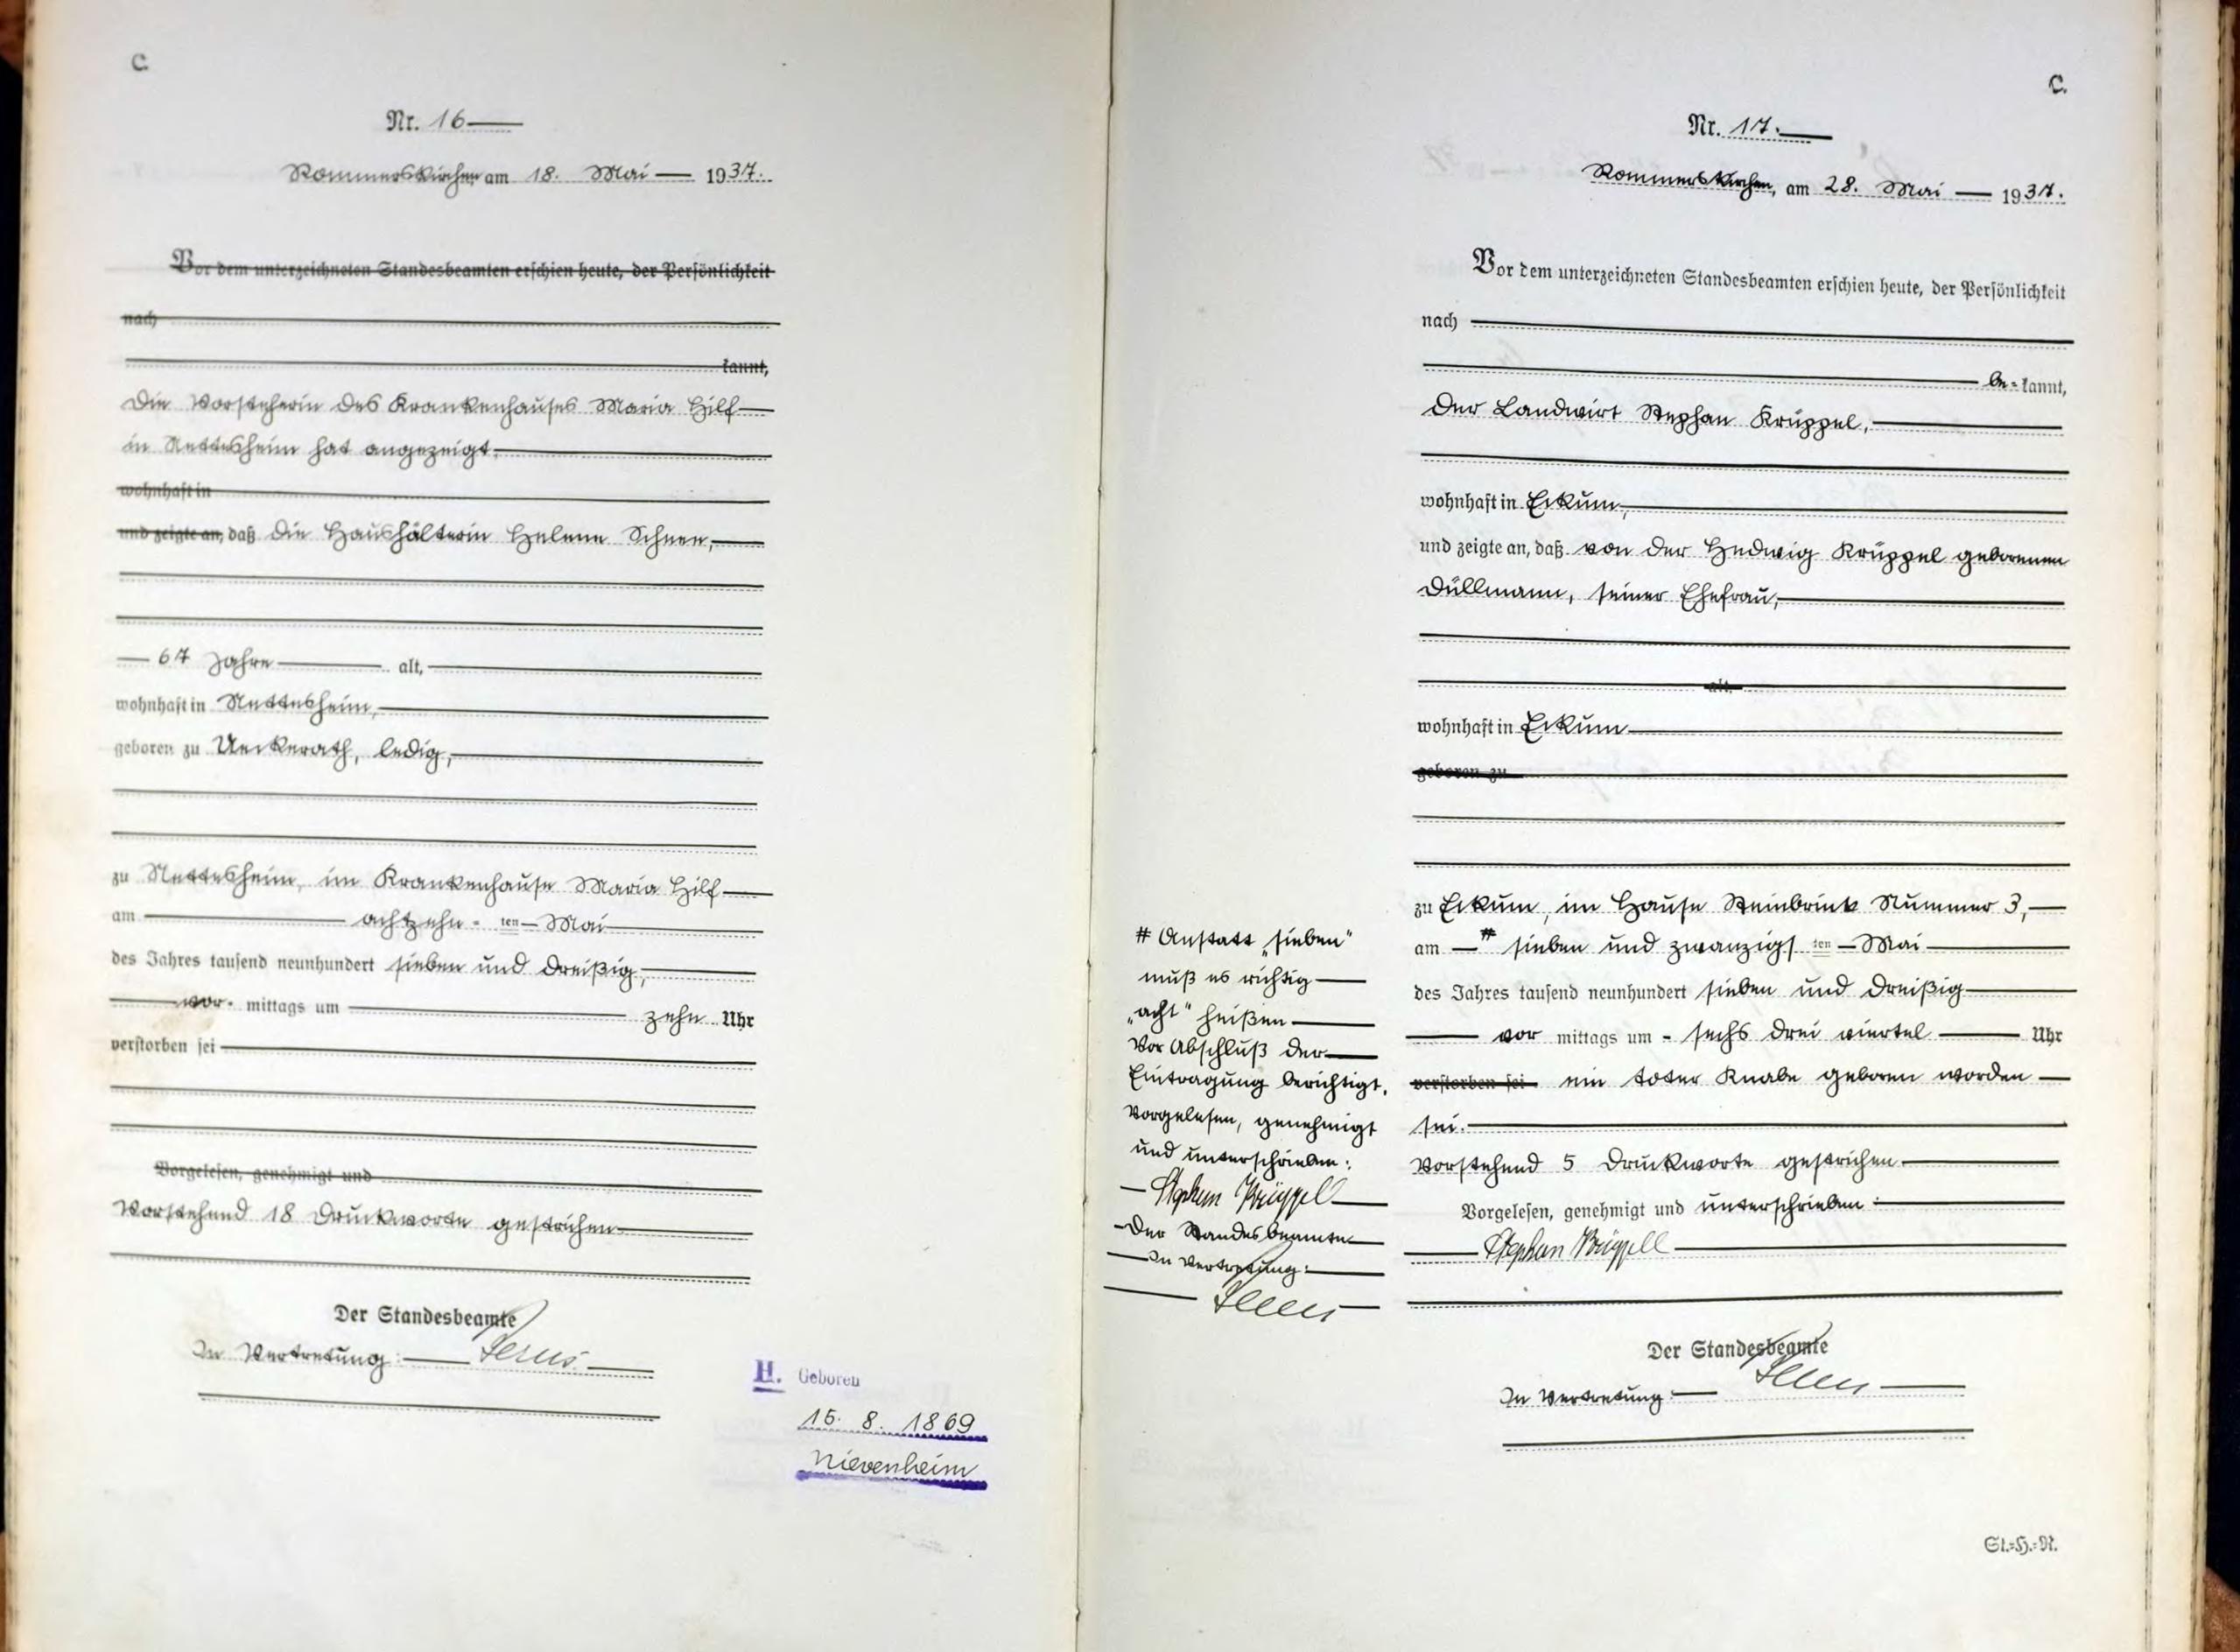 C.
Nr. 16
Rommerskirchen am 18. Mai 1937.
Vor dem unterzeichneten Standesbeamten erschien heute, der Persönlichkeit
nach
kannt,
die Vorsteherin des Krankenhauses Maria Hilf
in Nettesheim hat angezeigt,
wohnhaft in
und zeigte an, daß die Haushälterin Helene Schnee,
67 Jahre alt,
wohnhaft in Nettesheim,
geboren zu Ueckerath, ledig,
zu Nettesheim, im Krankenhause Maria Hilf
am achtzehn-ten Mai
des Jahres tausend neunhundert sieben und dreißig,
vor-mittags um zehn Uhr
verstorben sei
Vorgelesen, genehmigt und
Vorstehend 18 Druckworte gestrichen
Der Standesbeamte
In Vertretung:
H. Geboren
15. 8. 1869
Nievenheim
C.
Nr. 17.
Rommerskirchen, am 28. Mai 1937.
Vor dem unterzeichneten Standesbeamten erschien heute, der Persönlichkeit
nach
be-kannt,
der Landwirt Stephan Krüppel,
wohnhaft in Eckum,
und zeigte an, daß von der Hedwig Krüppel geborenen
Düllmann, seiner Ehefrau,
alt,
wohnhaft in Eckum
geboren zu
zu Eckum, im Hause Steinbrink Nummer 3,
am # sieben und zwanzigsten Mai
des Jahres tausend neunhundert sieben und dreißig
vor mittags um - sechs drei viertel Uhr
verstorben sei ein toter Knabe geboren worden
sei.
Vorstehend 5 Druckworte gestrichen
Vorgelesen, genehmigt und unterschrieben:
Stephan Krüppell
Der Standesbeamte
In Vertretung:
# Anstatt „sieben"
muß es richtig
„acht" heißen
Vor Abschluß der
Eintragung berichtigt.
Vorgelesen, genehmigt
und unterschrieben:
Stephan Krüppell
Der Standesbeamte
In Vertretung:
St.=H.=R.